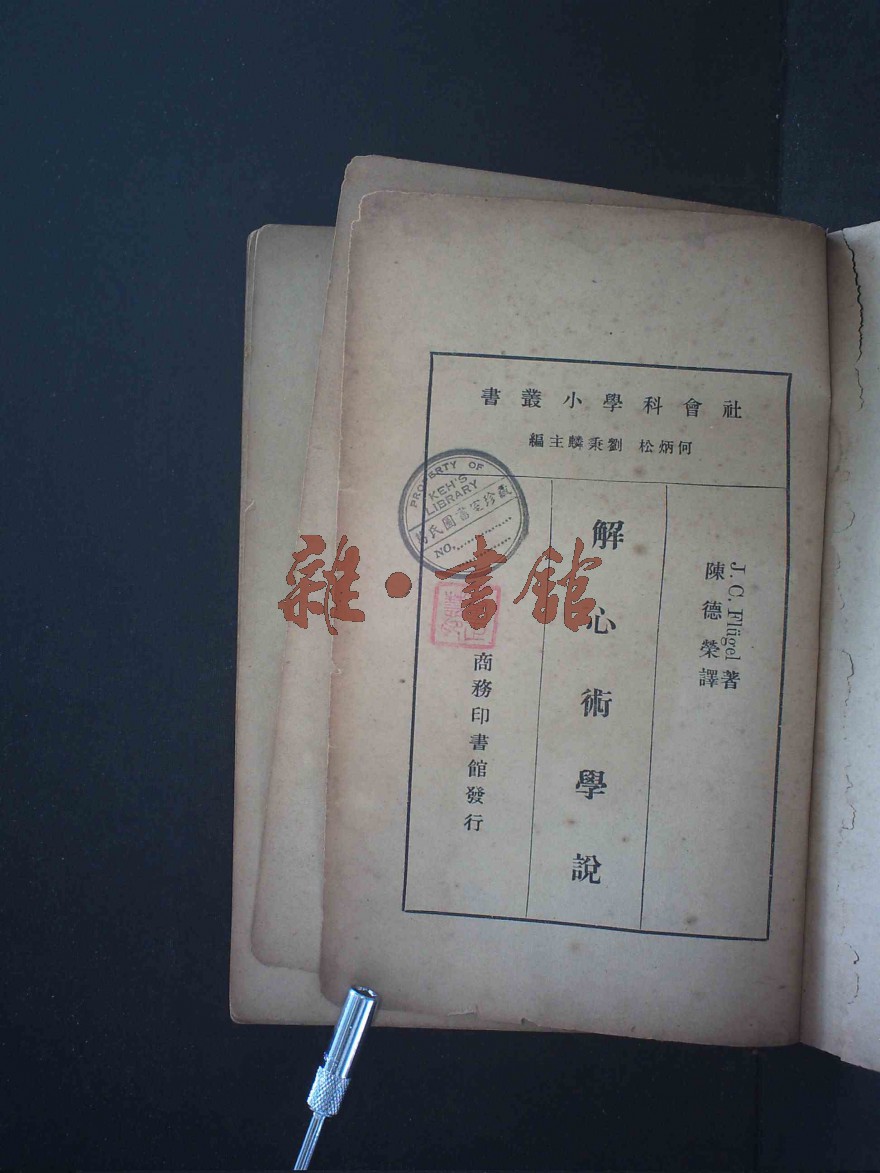 社會科學小叢書
何炳松 劉秉麟主編
J. C. Flügel著
陳德榮譯
解心術學說
商務印書館發行
PROPERTY OF
KEH'S
LIBRARY
氏圖書室珍藏
NO.
雜·書館